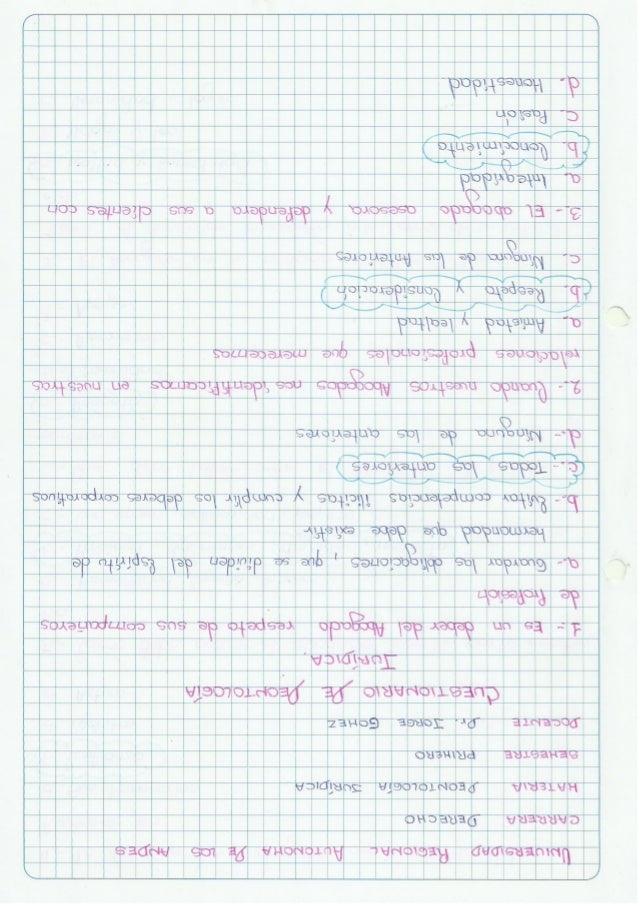 UNIVERSIDAD REGIONAL AUTONOMA DE LOS ANDES
CARRERA DERECHO
MATERIA DEONTOLOGÍA JURÍDICA
SEMESTRE PRIMERO
DOCENTE Dr. JORGE GOMEZ
CUESTIONARIO DE DEONTOLOGÍA
JURÍDICA.
1.- Es un deber del Abogado respeto de sus compañeros
de Profesión
a.- Guardar las obligaciones, que se dividen del Espíritu de
hermandad que debe existir
b.- Evitar competencias ilicitas y cumplir los deberes corporativos
c.- Todas las anteriores
d.- Ninguna de las anteriores
2.- Cuando nuestros Abogados nos identificamos en nuestras
relaciones profesionales que merecemos
a. Amistad y lealtad
b. Respeto y Consideración
c. Ninguna de las Anteriores
3.- El abogado asesora y defendera a sus clientes con
a. Integridad
b. Conocimiento
c. Pasión
d. Honestidad.